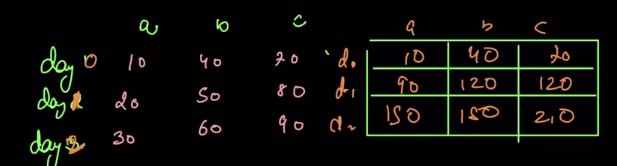 a b c
day 0 10 40 70
day 1 20 50 80
day 2 30 60 90
a b c
d0 10 40 70
d1 90 120 120
d2 150 180 210